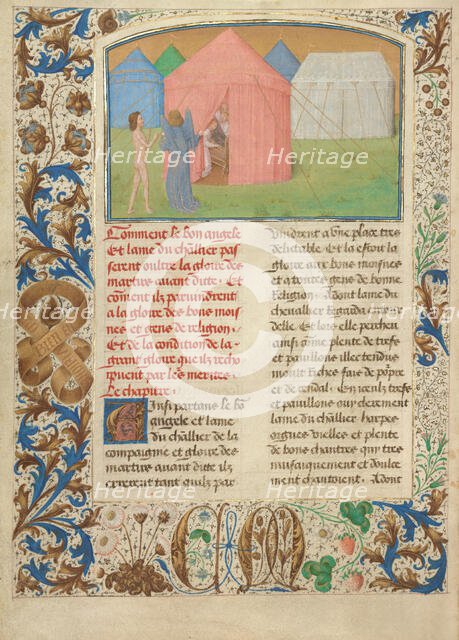 Heritage
Heritage
Comment le bon angele
Et lame du challier pas
serent oultre la gloire des
martirs auant ditte. Et
coment ilz paruindrent
a la gloire des bons mois
nes et gens de religion.
Et de la condition de la
grant gloire que ilz recho
iuent par les merites.
Le chapitre.
Ainsi partans le bo
angele et lame
du challier de la
compaignie et gloire des
martirs auant ditte ilz
errerent tant quilz par
uindrent a vne place tres
delitable. Et la estoit la
gloire aux bons moisnes
et a toutes gens de bonne
Religion. Adont lame du
cheuallier regarda
delle. Et lors elle percheu
ainsi come plente de trefs
et pauillons illec tendus
moult riches fais de popre
et de cendal. En iceulz trefs
et pauillons ouy clerement
lame du challier harpes
orgues vielles et plente
de bons chantres qui tres
musaiquement et doulce
ment chantoient. Adont
CM
Heritage
Heritage
Heritage
Heritage
Heritage
Heritage